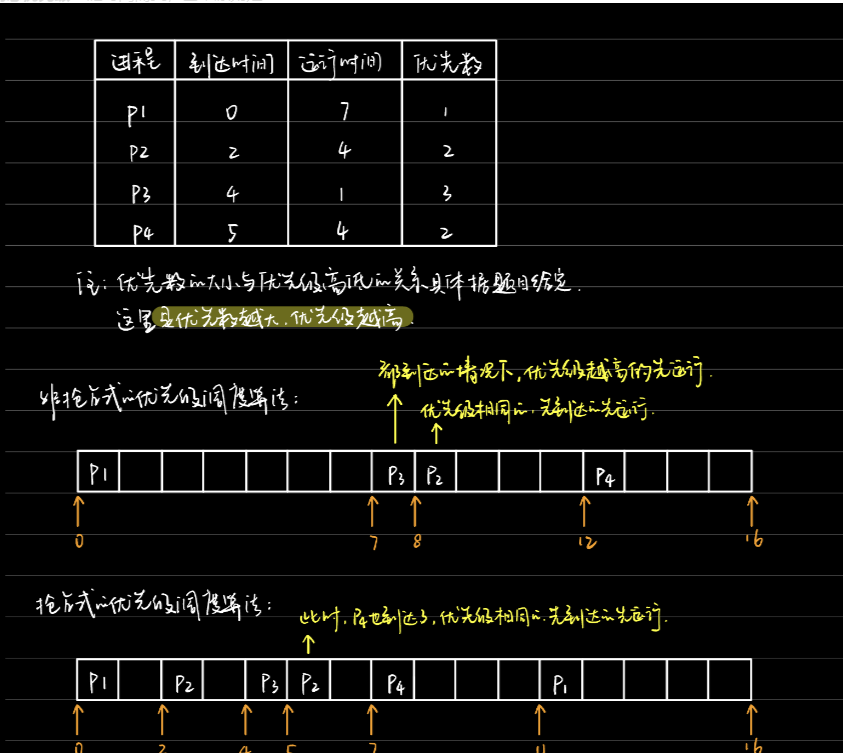 进程 到达时间 运行时间 优先数
P1 0 7 1
P2 2 4 2
P3 4 1 3
P4 5 4 2
注:优先数的大小与优先级高低的关系具体据题目给定.
这里且优先数越大,优先级越高.
都到达的情况下,优先级越高的先运行.
非抢占式的优先级调度算法:
优先级相同的,先到达的先运行.
P1 P3 P2 P4
0 7 8 12 16
抢占式的优先级调度算法:
此时,P4也到达了,优先级相同的.先到达的先运行.
P1 P2 P3 P2 P4 P1
0 2 4 5 7 11 16